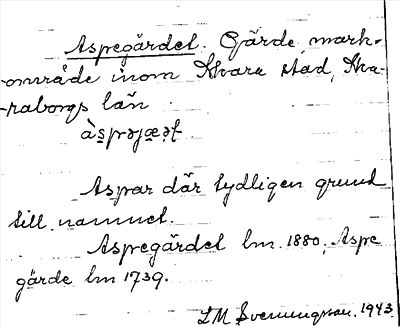 Aspegärdet. Gärde, mark-
område inom Skara stad, Ska-
raborgs län
àspəjæṣt
Aspar där tydligen grund
till namnet.
Aspegärdet lm. 1880, Aspe
gärde lm 1739.
LM Svenungsson. 1943.